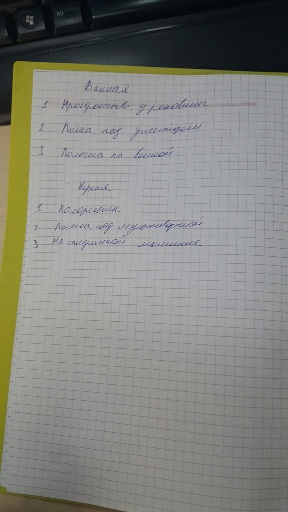 Ванная
1 Пространство у раковины
2 Полка под умывальником
3 Полочка на ванной
Кухня
1 Холодильник
2 Полка над мультиваркой
3 На стиральной машинке